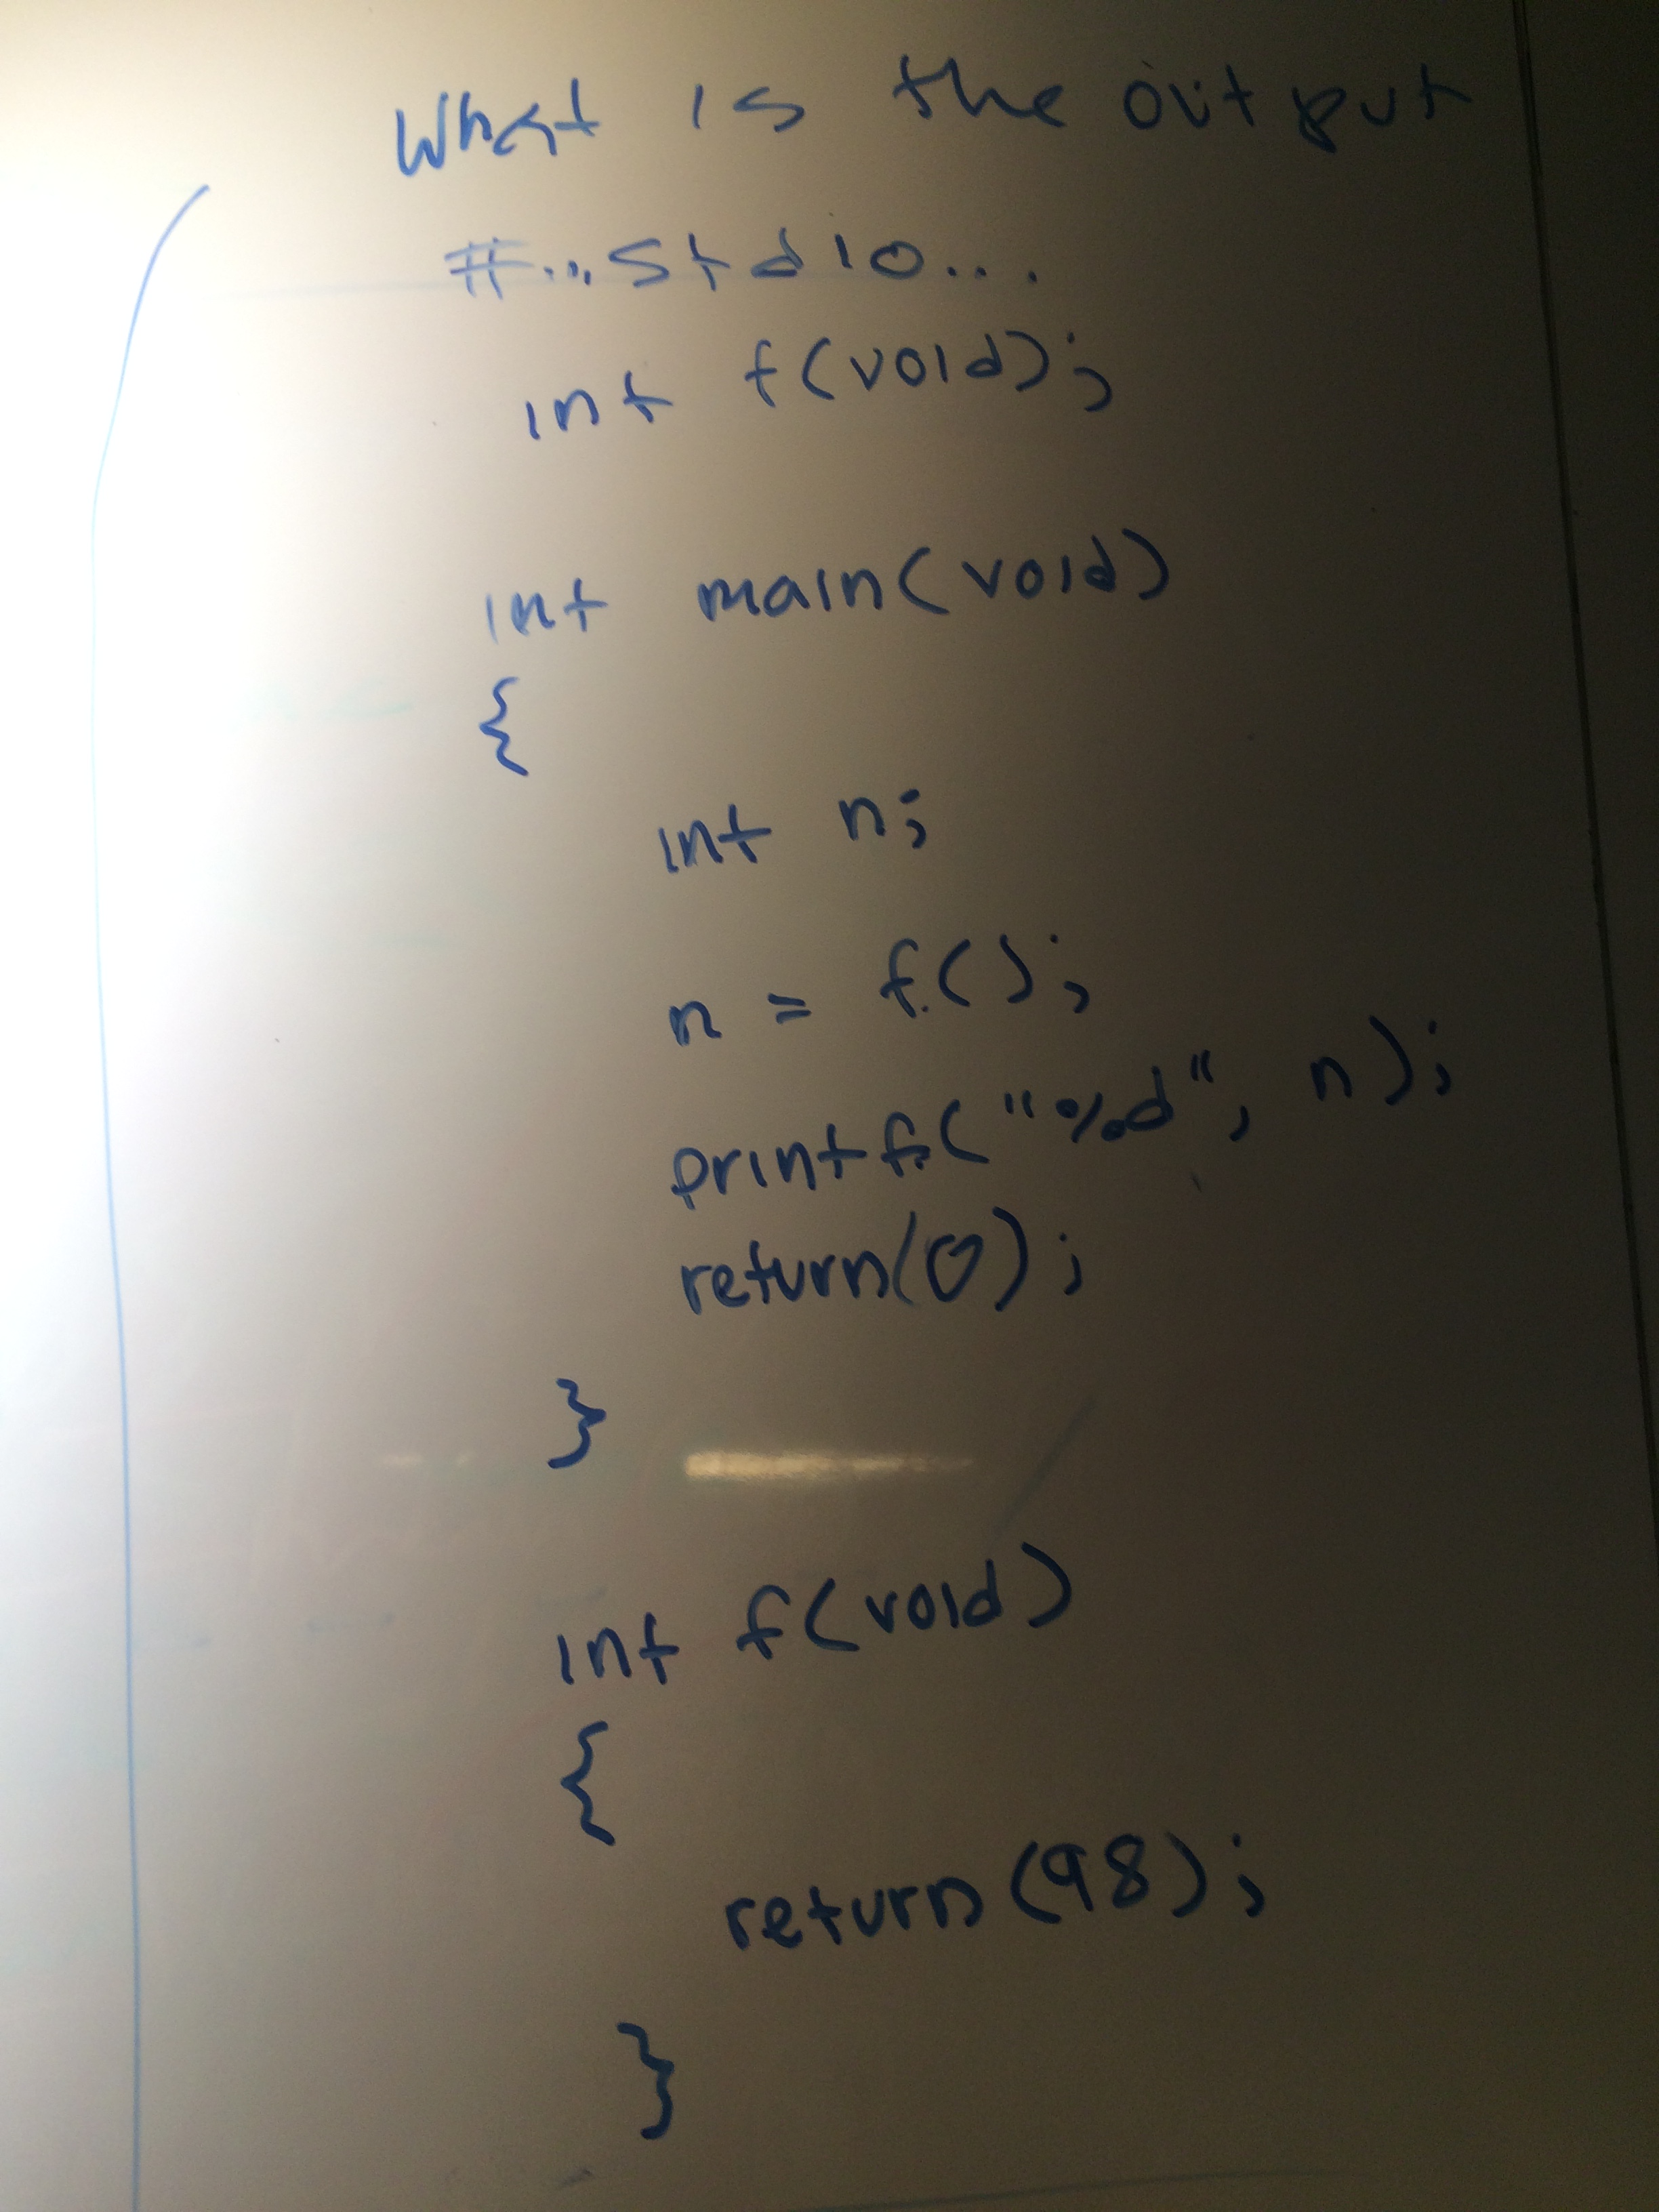 What is the output
#...stdio...
int f(void);
int main(void)
{
int n;
n = f();
printf("%d", n);
return(0);
}
int f(void)
{
return(98);
}